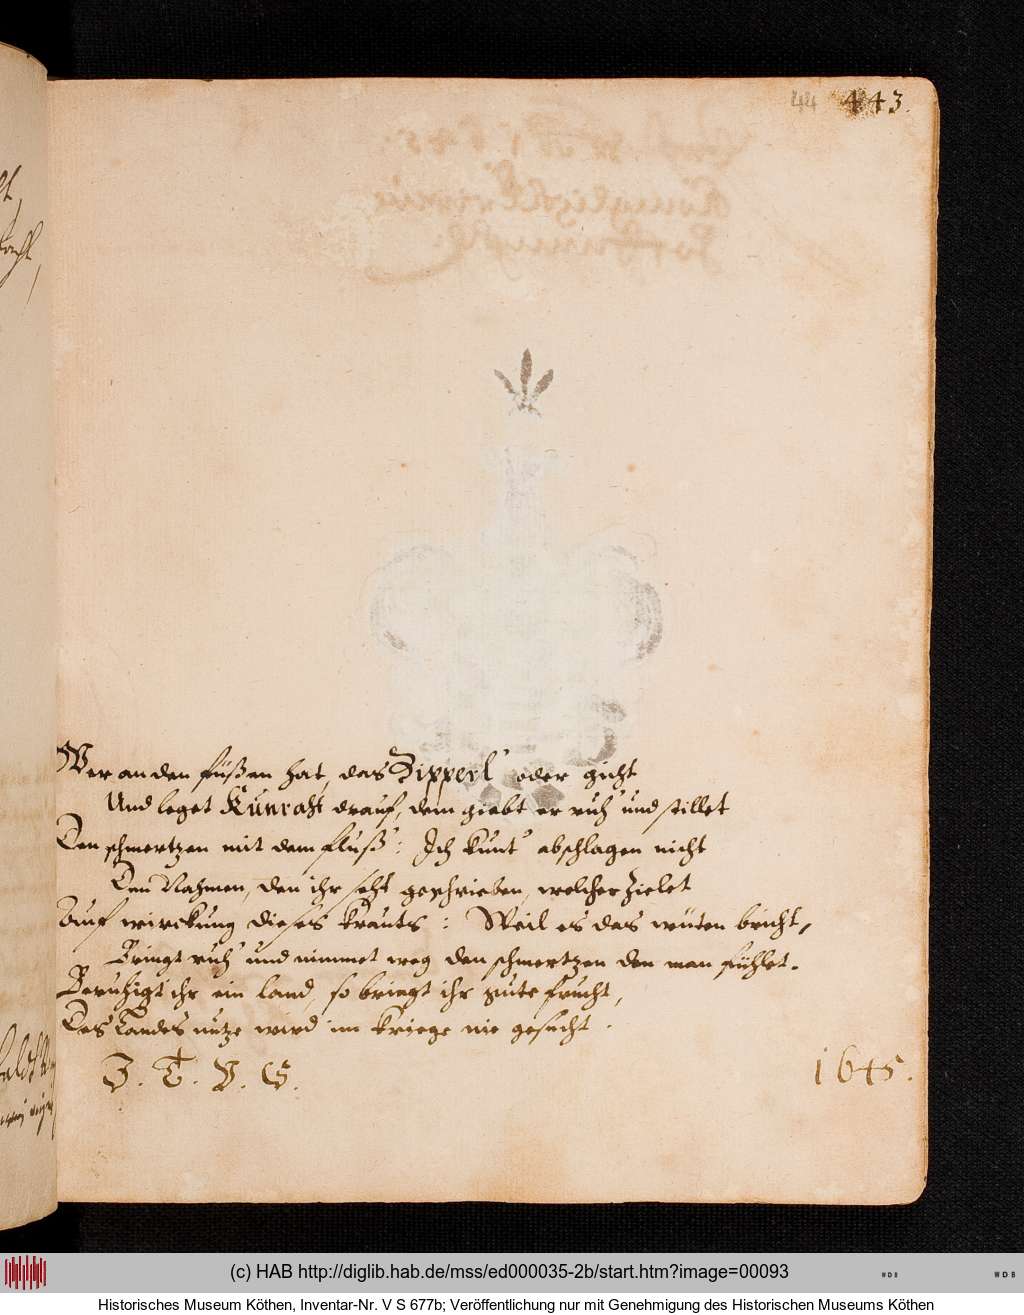 44 443.
Wer an den füßen hat, das Zipperl oder gicht
Und leget Kunraht drauf, dem giebt er ruh und stillet
Den schmertzen mit dem fluß: Ich kunt abschlagen nicht
Den Nahmen, den ihr seht geschrieben, welcher zielet
Auf wirckung dieses krauts: Weil es das wüten bricht,
Bringt ruh und nimmet weg den schmertzen den man fühlet.
Beruhigt ihr ein land, so bringt ihr gute frucht,
Des Landes nutze wird im kriege nie gesucht.
J. T. V. S.
1645.
(c) HAB http://diglib.hab.de/mss/ed000035-2b/start.htm?image=00093
WDB
WDB
Historisches Museum Köthen, Inventar-Nr. V S 677b; Veröffentlichung nur mit Genehmigung des Historischen Museums Köthen